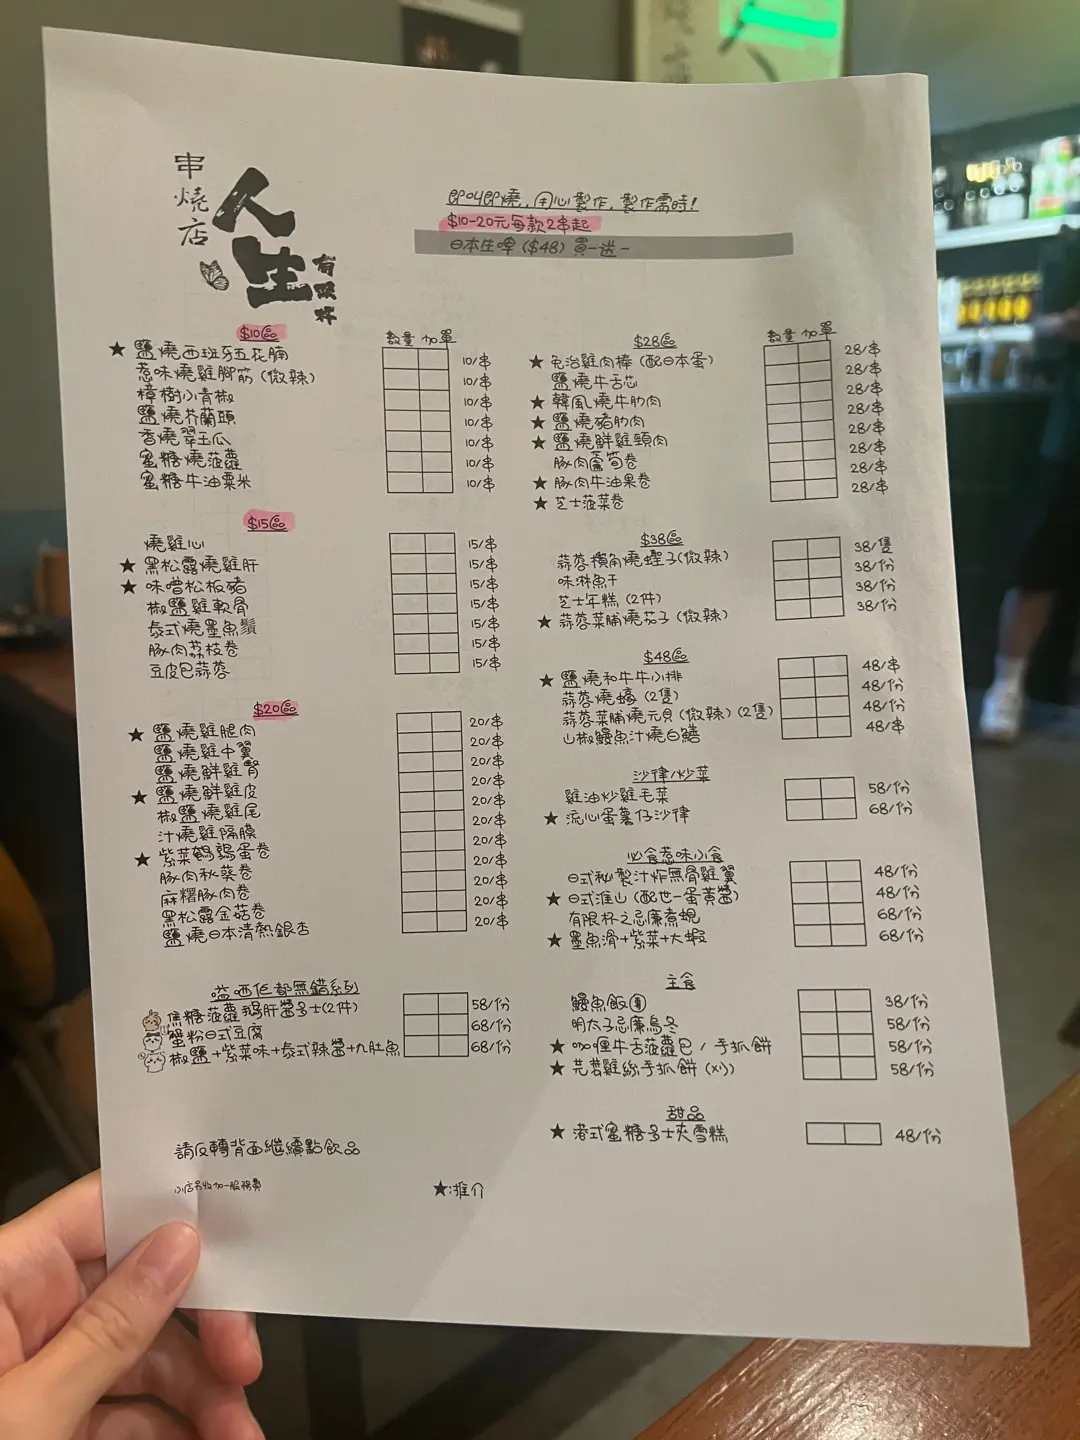 串燒店
人生
有限杯
即叫即燒，用心製作，製作需時！
$10-20元每款2串起
日本生啤 ($48) 買一送一
$10區
數量 加單
★ 鹽燒西班牙五花腩 10/串
惹味燒雞腳筋 (微辣) 10/串
樟樹小青椒 10/串
鹽燒芥蘭頭 10/串
香燒翠玉瓜 10/串
蜜糖燒菠蘿 10/串
蜜糖牛油粟米 10/串
$15區
燒雞心 15/串
★ 黑松露燒雞肝 15/串
★ 味噌松板豬 15/串
椒鹽雞軟骨 15/串
泰式燒墨魚鬚 15/串
豚肉荔枝卷 15/串
豆皮包蒜蓉 15/串
$20區
★ 鹽燒雞腿肉 20/串
鹽燒雞中翼 20/串
鹽燒鮮雞腎 20/串
★ 鹽燒鮮雞皮 20/串
椒鹽燒雞尾 20/串
汁燒雞隔膜 20/串
★ 紫菜鵪鶉蛋卷 20/串
豚肉秋葵卷 20/串
麻糬豚肉卷 20/串
黑松露金菇卷 20/串
鹽燒日本清熱銀杏 20/串
嗌哂佢都無錯系列
焦糖菠蘿鵝肝醬多士(2件) 58/份
蟹粉日式豆腐 68/份
椒鹽+紫菜味+泰式辣醬+九肚魚 68/份
請反轉背面繼續點飲品
小店另收加一服務費
★:推介
$28區
數量 加單
★ 免治雞肉棒 (配日本蛋) 28/串
鹽燒牛舌芯 28/串
★ 韓風燒牛肋肉 28/串
★ 鹽燒豬肋肉 28/串
★ 鹽燒鮮雞頸肉 28/串
豚肉蘆筍卷 28/串
★ 豚肉牛油果卷 28/串
★ 芝士菠菜卷 28/串
$38區
蒜蓉欖角燒蟶子(微辣) 38/隻
味淋魚干 38/份
芝士年糕 (2件) 38/份
★ 蒜蓉菜脯燒茄子 (微辣) 38/份
$48區
★ 鹽燒和牛牛小排 48/串
蒜蓉燒蠔 (2隻) 48/份
蒜蓉菜脯燒元貝 (微辣) (2隻) 48/份
山椒鰻魚汁燒白鱔 48/串
沙律/炒菜
雞油炒雞毛菜 58/份
★ 流心蛋薯仔沙律 68/份
必食惹味小食
日式秘製汁炸無骨雞翼 48/份
★ 日式淮山 (配世一蛋黃醬) 48/份
有限杯之忌廉煮蜆 68/份
★ 墨魚滑+紫菜+大蝦 68/份
主食
鰻魚飯團 38/份
明太子忌廉烏冬 58/份
★ 咖喱牛舌菠蘿包 / 手抓餅 58/份
★ 芫荽雞絲手抓餅 (x1) 58/份
甜品
★ 港式蜜糖多士夾雪糕 48/份